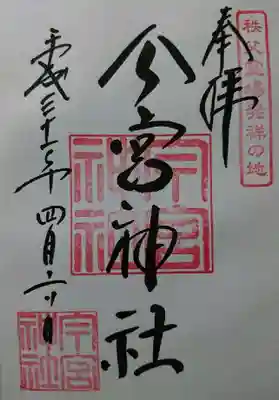 秩父霊場発祥の地
奉拝
今宮神社
今宮神社
平成三十一年四月六日
今宮神社